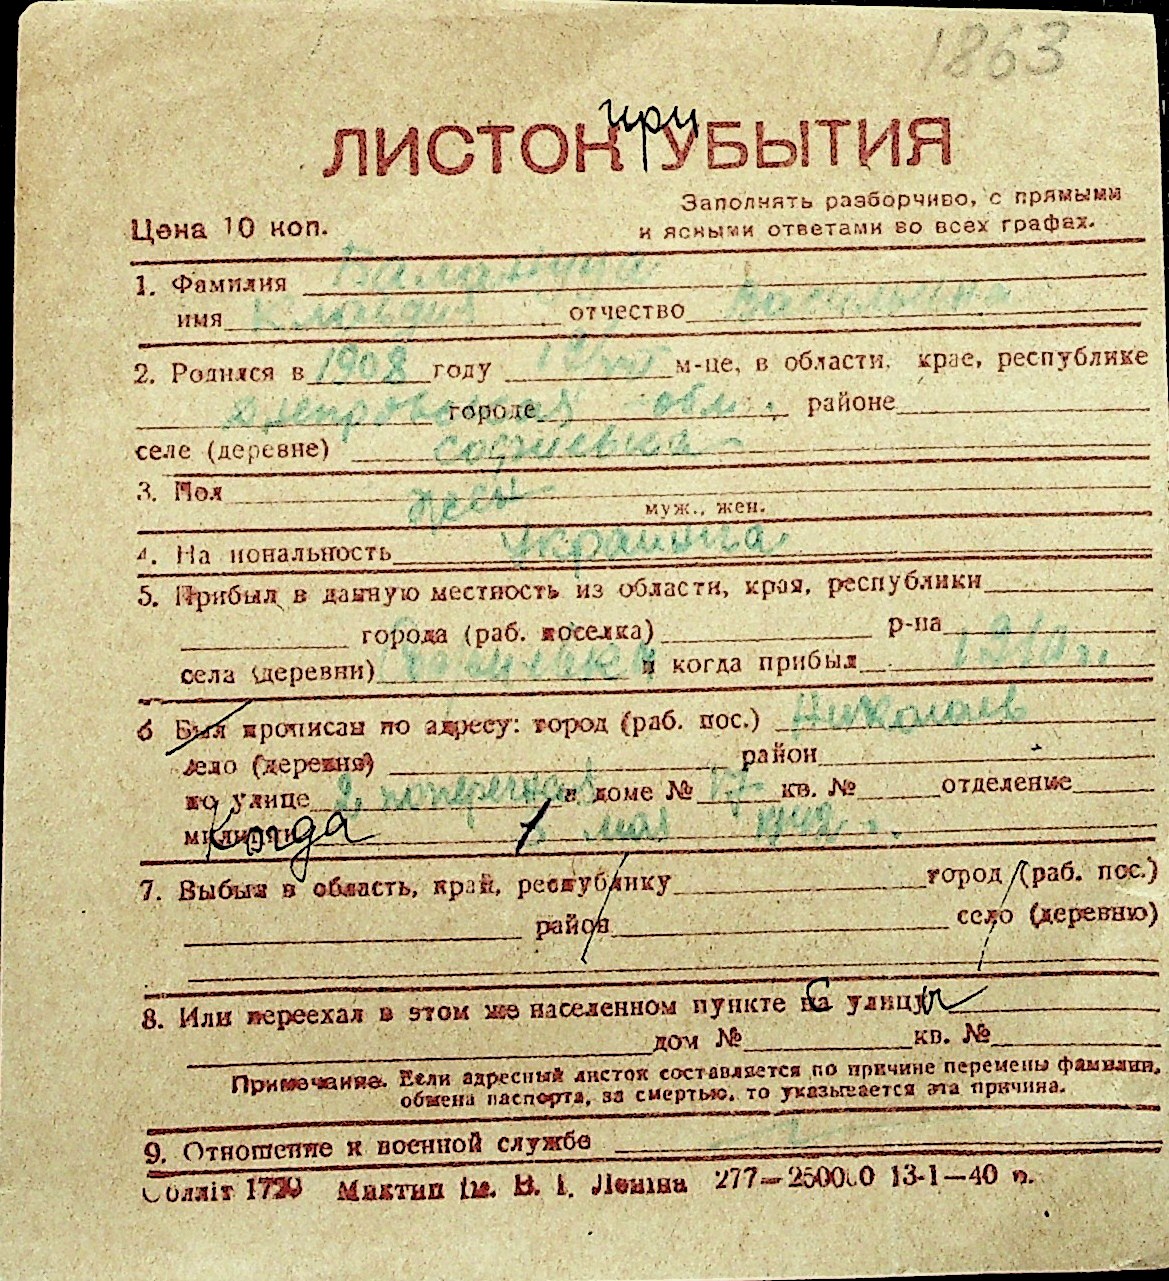 1863
при
ЛИСТОК УБЫТИЯ
Заполнять разборчиво, с прямыми
Цена 10 коп.
и ясными ответами во всех графах.
1. Фамилия
имя Клавдия отчество Васильевна
2. Родился в 1908 году м-це, в области, крае, республике
Днепровская городе обл. районе
селе (деревне) Софиевка
3. Пол жен
муж., жен.
4. Национальность Украинка
5. Прибыл в данную местность из области, края, республики
города (раб. поселка) р-на
села (деревни) Софиевка и когда прибыл 1910 г.
6 Был прописан по адресу: город (раб. пос.) Николаев
село (деревня) район
по улице 2 поперечная в доме № 17 кв. № отделение
милиции Когда мая 1942 г.
7. Выбыл в область, край, республику город (раб. пос.)
район село (деревню)
8. Или переехал в этом же населенном пункте на улицу
дом № кв. №
Примечание. Если адресный листок составляется по причине перемены фамилии,
обмена паспорта, за смертью, то указывается эта причина.
9. Отношение к военной службе
Облліт 1720 Миктип ім. В. І. Леніна 277—250000 13-1—40 р.